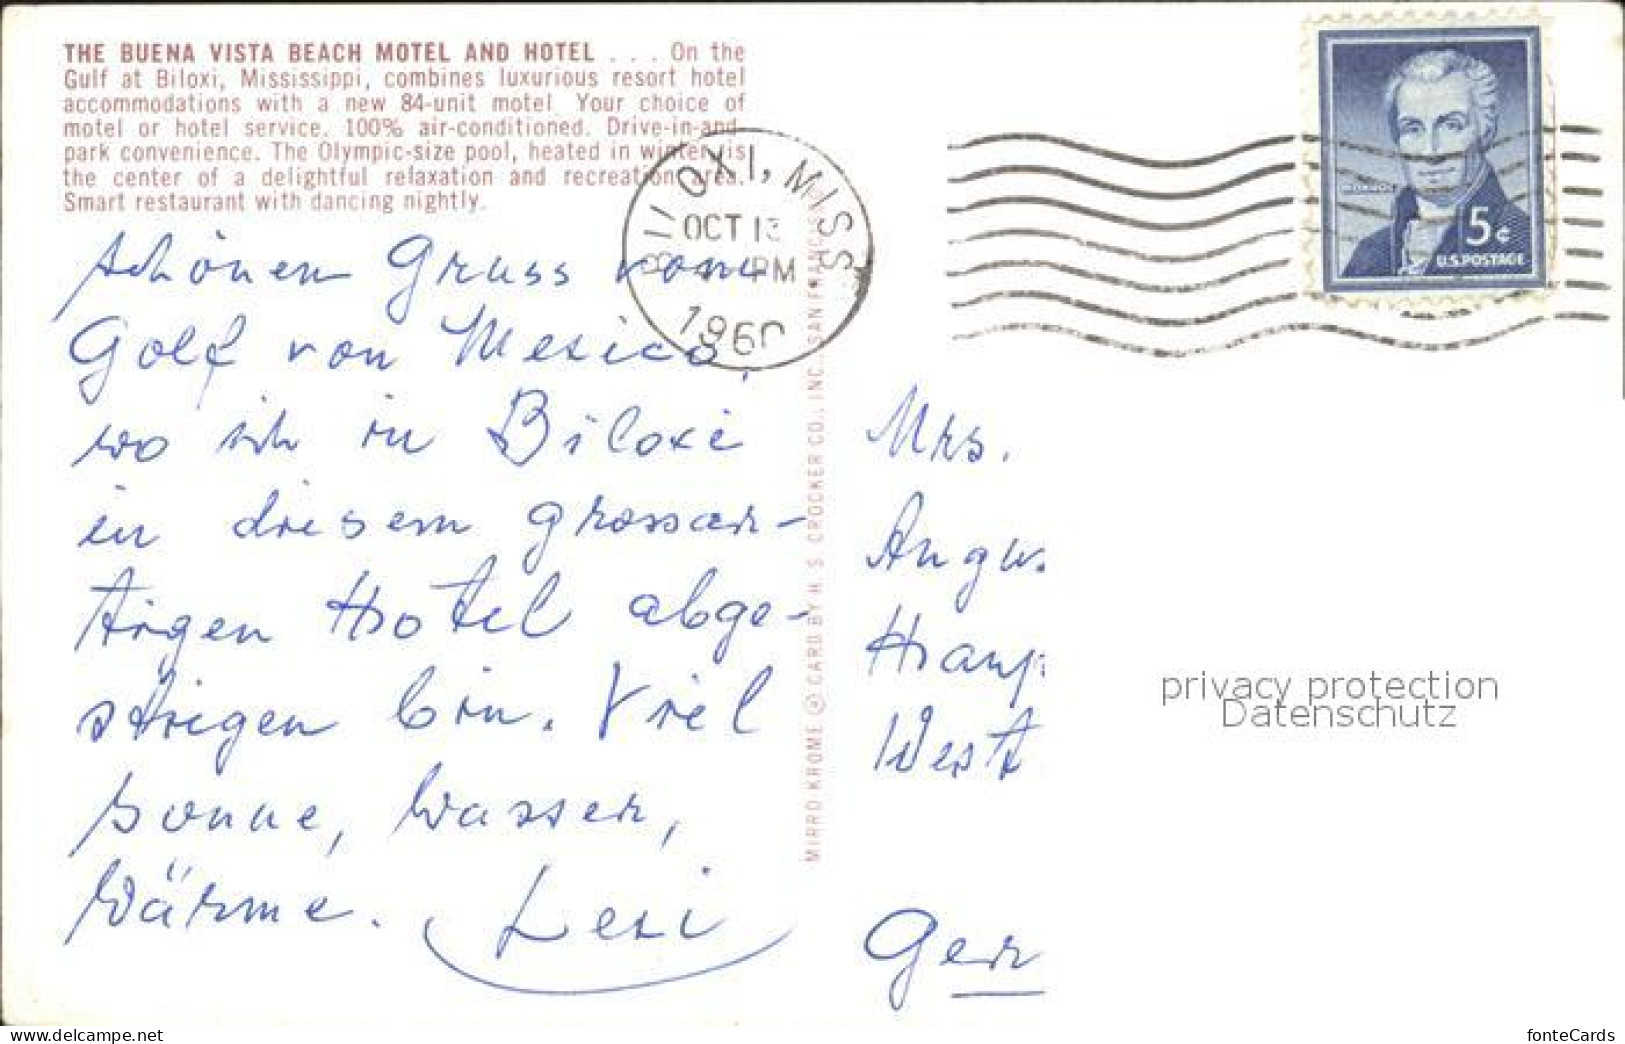 THE BUENA VISTA BEACH MOTEL AND HOTEL . . . On the
Gulf at Biloxi, Mississippi, combines luxurious resort hotel
accommodations with a new 84-unit motel. Your choice of
motel or hotel service. 100% air-conditioned. Drive-in-and-
park convenience. The Olympic-size pool, heated in winter, is
the center of a delightful relaxation and recreation area.
Smart restaurant with dancing nightly.
Schönen Gruss vom
Golf von Mexico,
wo ich in Biloxi
in diesem grossar-
tigen Hotel abge-
stiegen bin. Viel
Sonne, Wasser,
Wärme.
BILOXI, MISS.
OCT 13
PM
1960
MIRRO KROME ® CARD BY H. S. CROCKER CO., INC., SAN FRANCIS
MONROE
5¢
U.S. POSTAGE
Mrs.
West
Ger
privacy protection
Datenschutz
www.delcampe.net
fonteCards